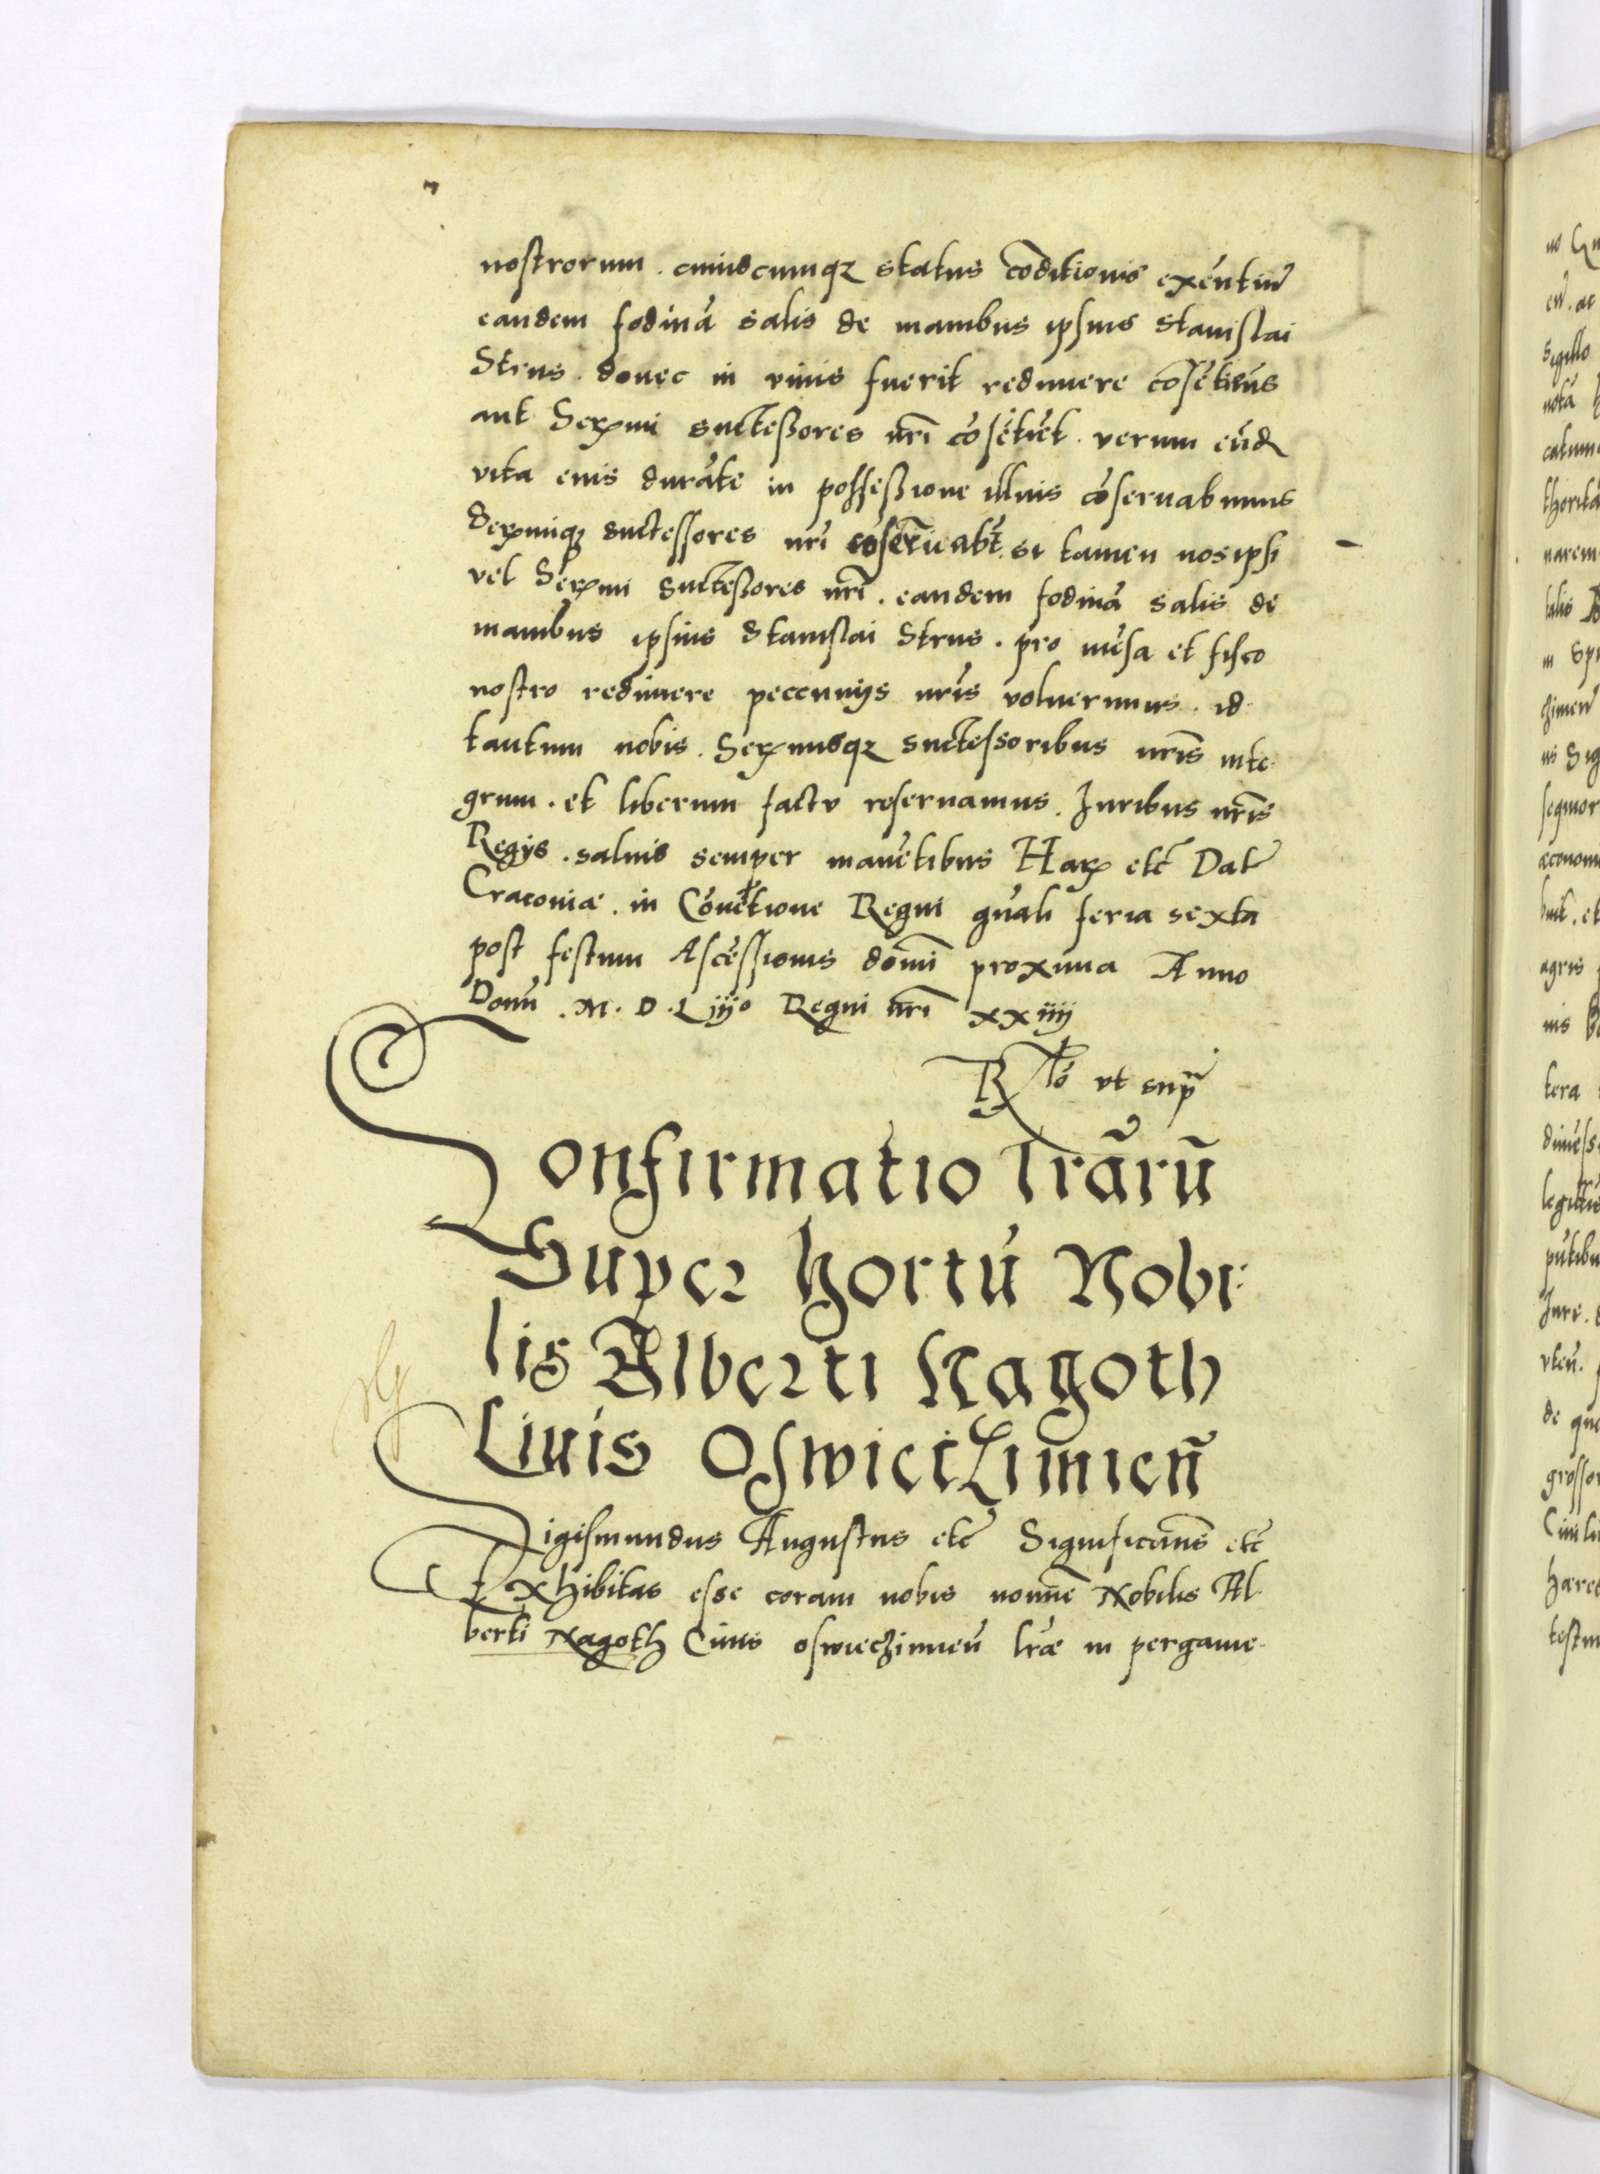 nostrorum . cuiuscumqz status cōditionis existentiū
eandem fodinā salis de manibus ipsius Stanislai
Strus . donec in viuis fuerit redimere cōsētimus
aut Serīmi suctessores nrī cōsētiēt . verum eūd
vita eius durāte in possessione illius cōseruabimus
Serīmiqz suctessores nrī cōseruabūt . si tamen nos ipsi
vel Serīmi suctessores nrī . eandem fodinā salis de
manibus ipsius Stanislai Strus . pro mēsa et fisco
nostro redimere peccunijs nrīs voluerimus . id
tantum nobis . Serīmisqz suctessoribus nrīs inte-
grum . et liberum factu reseruamus . Iuribus nrīs
Regijs . saluis semper manētibus Harū etc̄ Dat̄
Cracoviæ . in Cōuētione Regni gn̄ali feria sexta
post festum Ascēssionis domī proxima Anno
Domī . M . D . Liijo Regni nrī xxiiij
Rlō vt supr̄
Confirmatio lrārū
Super hortū Nobi-
lis Alberti Nagoth
Ciuis Oswieczimien̄
Sigismundus Augustus etc̄ Significam̄s etc̄
Exhibitas esse coram nobis nom̄ne Nobilis Al-
berti Nagoth Ciuis oswieczimien̄ lrāe in pergame-